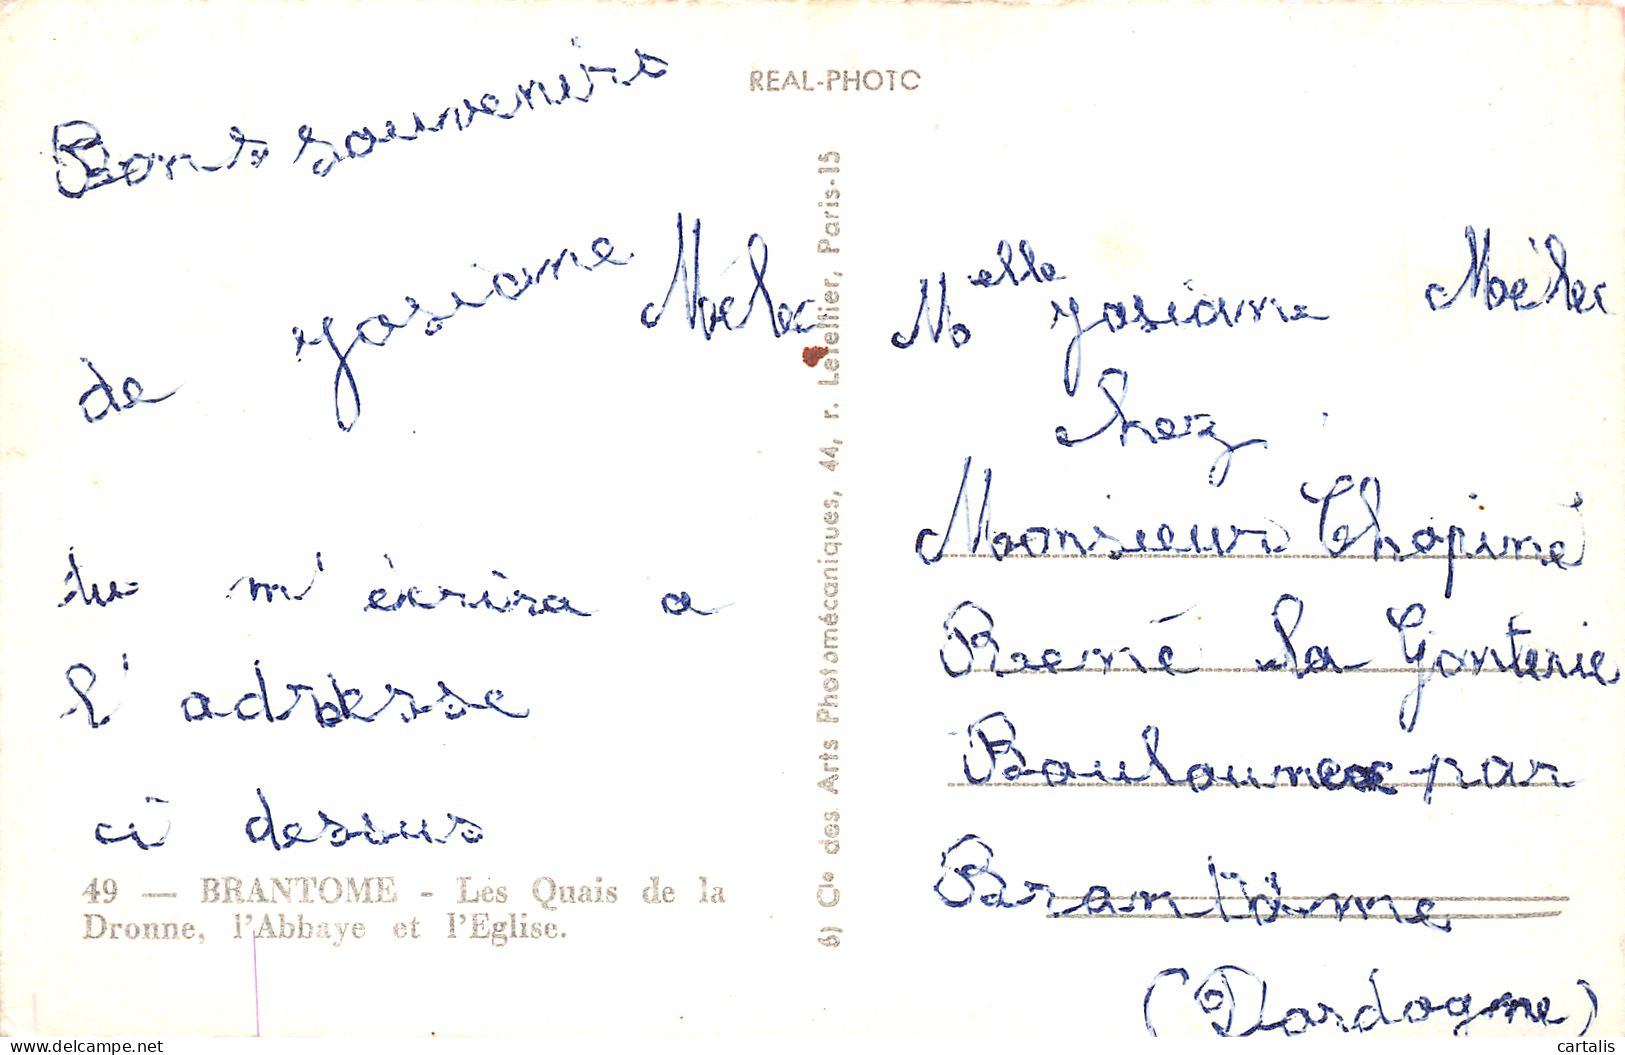 REAL-PHOTO
Bons souvenirs
de Josiane Mélec
tu m'écrira a
l'adresse
ci dessus
49 — BRANTOME - Les Quais de la
Dronne, l'Abbaye et l'Eglise.
6) Cie des Arts Photomécaniques, 44, r. Letellier, Paris-15
Melle Josiane Mélec
chez
Monsieur Chapiné
René la Gonterie
Boulouneix par
Brantôme
(Dordogne)
cartalis